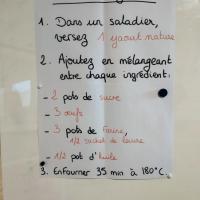 1. Dans un saladier,
versez 1 yaourt nature
2. Ajoutez en mélangeant
entre chaque ingrédient:
- 2 pots de sucre
- 3 oeufs
- 3 pots de farine,
1/2 sachet de levure
- 1/2 pot d'huile
3. Enfourner 35 min à 180°C.